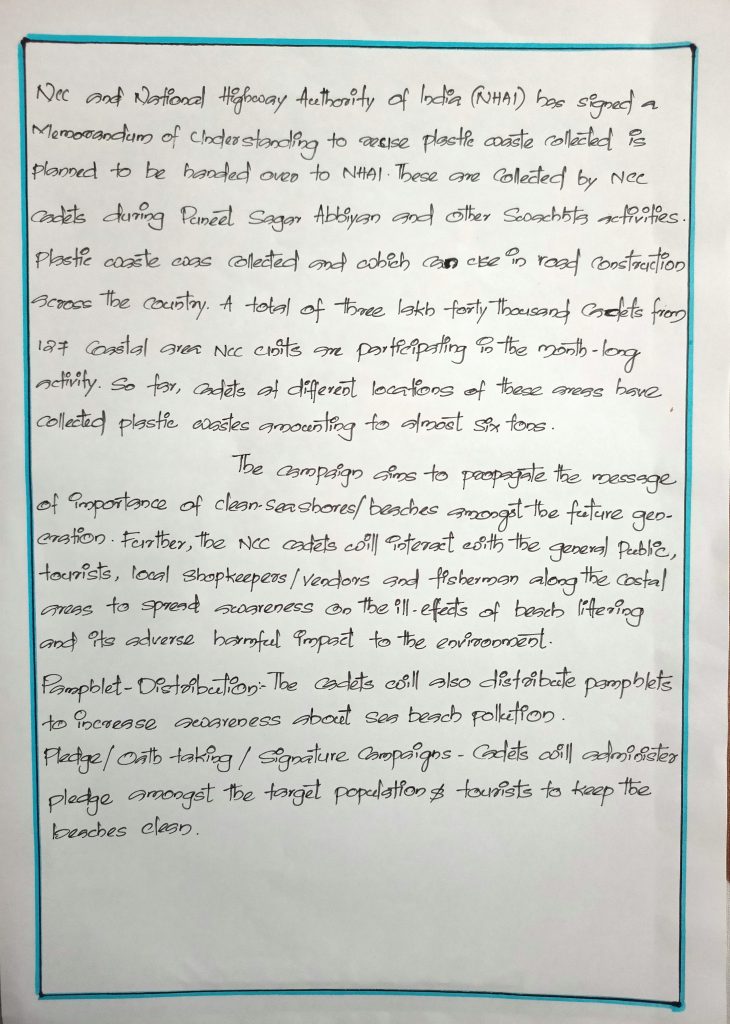 Ncc and National Highway Authority of India (NHAI) has signed a
Memorandum of Understanding to reuse plastic waste collected is
planned to be handed over to NHAI. These are Collected by Ncc
cadets during Puneet Sagar Abhiyan and other Swachhta activities.
Plastic waste was collected and which can use in road construction
across the country. A total of three lakh forty thousand Cadets from
127 Coastal area Ncc units are participating in the month-long
activity. So far, cadets at different locations of these areas have
collected plastic wastes amounting to almost six tons.
The campaign aims to propagate the message
of importance of clean-sea shores/beaches amongst the future gen-
eration. Further, the Ncc cadets will interact with the general Public,
tourists, local shopkeepers/vendors and fisherman along the costal
areas to spread awareness on the ill-effects of beach littering
and its adverse harmful impact to the environment.
Pamphlet-Distribution:- The cadets will also distribute pamphlets
to increase awareness about sea beach pollution.
Pledge/Oath taking/Signature Campaigns - Cadets will administer
pledge amongst the target population & tourists to keep the
beaches clean.